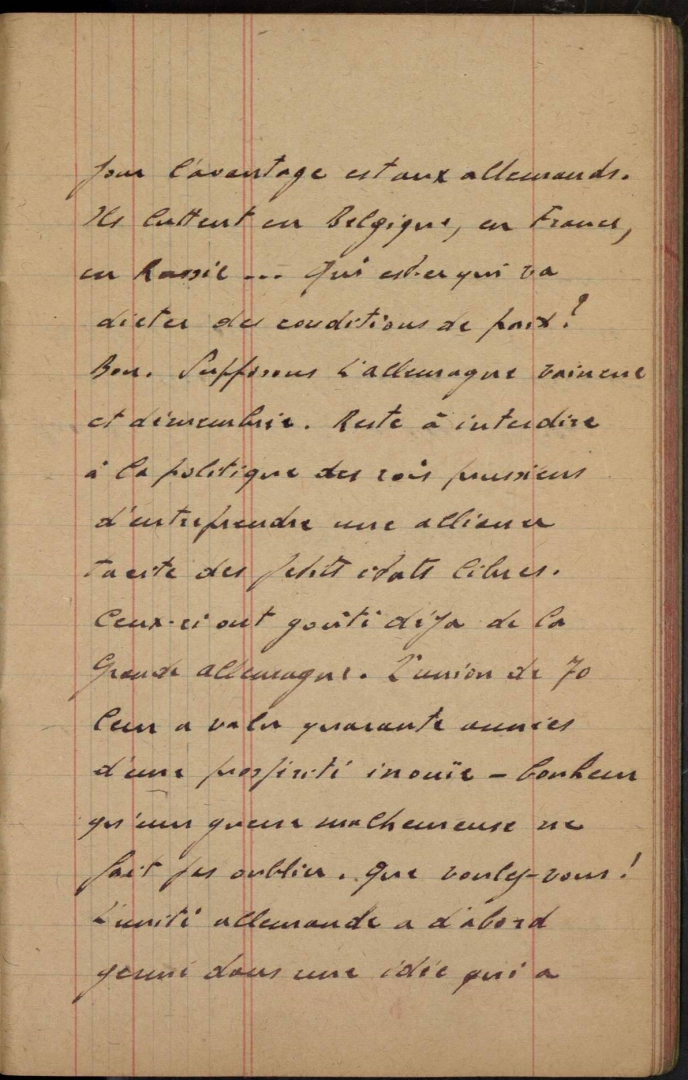 jour l'avantage est aux allemands.
Ils luttent en Belgique, en France,
en Russie ... Qui est-ce qui va
dicter des conditions de paix?
Bon. Supposons L'allemagne vaincue
et démembrée. Reste à interdire
à la politique des rois prussiens
d'entreprendre une alliance
tacite des petits états libres.
Ceux-ci ont goûté déjà de la
Grande allemagne. L'union de 70
leur a valu quarante années
d'une prospérité inouïe – bonheur
qu'une guerre malheureuse ne
fait pas oublier. Que voulez-vous!
L'unité allemande a d'abord
germé dans une idée qui a